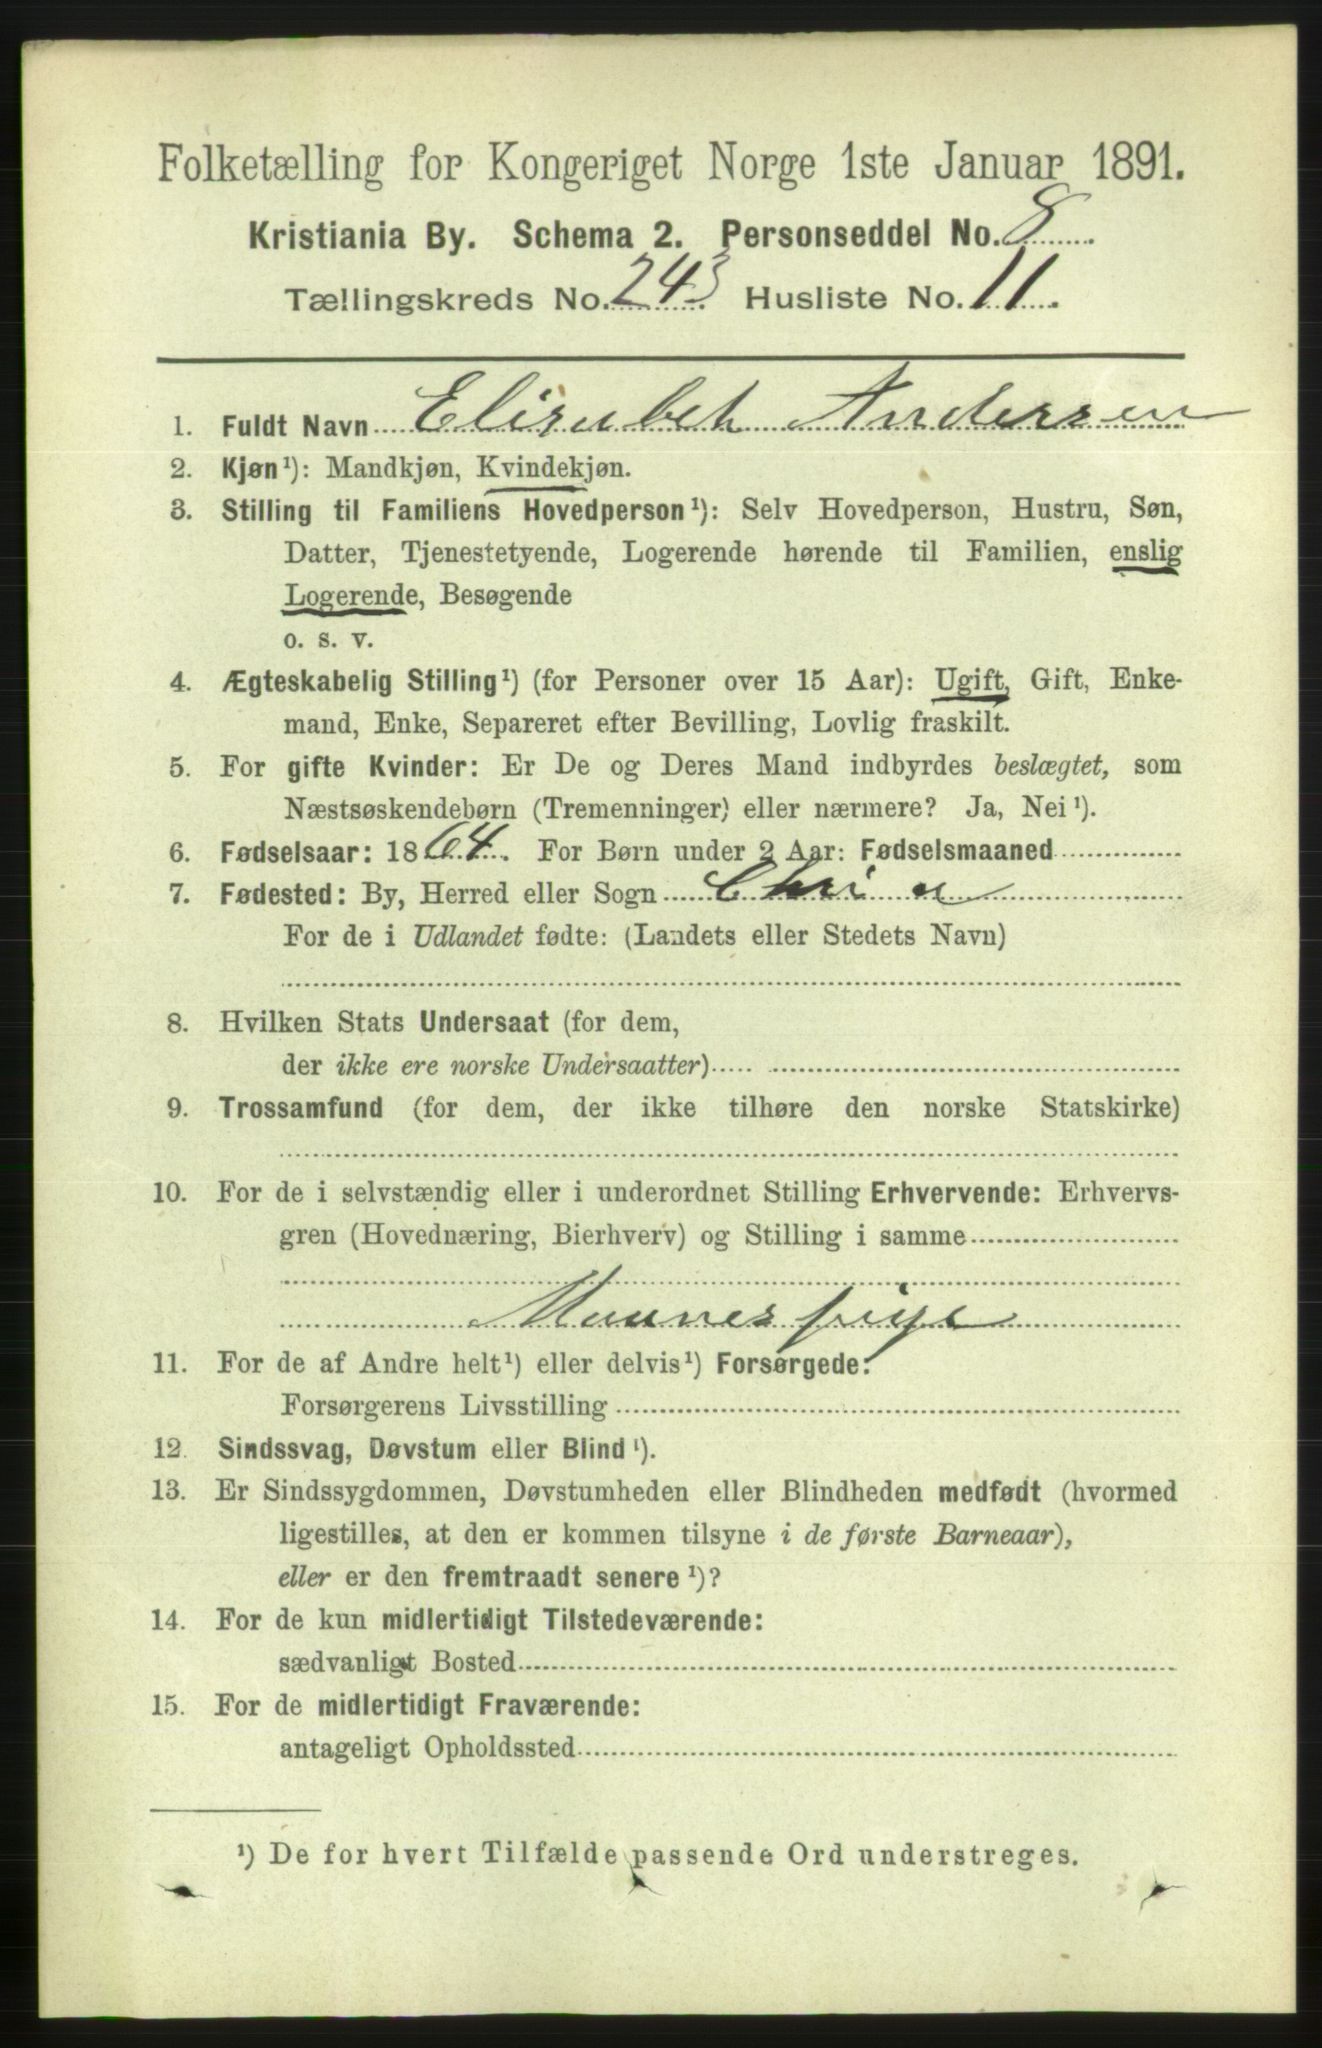 Folketælling for Kongeriget Norge 1ste Januar 1891.
Kristiania By. Schema 2. Personseddel No. 8
Tællingskreds No. 243 Husliste No. 11.
1. Fuldt Navn Elisabeth Andersen
2. Kjøn¹): Mandkjøn, Kvindekjøn.
3. Stilling til Familiens Hovedperson¹): Selv Hovedperson, Hustru, Søn,
Datter, Tjenestetyende, Logerende hørende til Familien, enslig
Logerende, Besøgende
o. s. v.
4. Ægteskabelig Stilling¹) (for Personer over 15 Aar): Ugift, Gift, Enke-
mand, Enke, Separeret efter Bevilling, Lovlig fraskilt.
5. For gifte Kvinder: Er De og Deres Mand indbyrdes beslægtet, som
Næstsøskendebørn (Tremenninger) eller nærmere? Ja, Nei¹).
6. Fødselsaar: 1864. For Børn under 2 Aar: Fødselsmaaned
7. Fødested: By, Herred eller Sogn Chria
For de i Udlandet fødte: (Landets eller Stedets Navn)
8. Hvilken Stats Undersaat (for dem,
der ikke ere norske Undersaatter)
9. Trossamfund (for dem, der ikke tilhøre den norske Statskirke)
10. For de i selvstændig eller i underordnet Stilling Erhvervende: Erhvervs-
gren (Hovednæring, Bierhverv) og Stilling i samme
pige
11. For de af Andre helt¹) eller delvis¹) Forsørgede:
Forsørgerens Livsstilling
12. Sindssvag, Døvstum eller Blind¹).
13. Er Sindssygdommen, Døvstumheden eller Blindheden medfødt (hvormed
ligestilles, at den er kommen tilsyne i de første Barneaar),
eller er den fremtraadt senere¹)?
14. For de kun midlertidigt Tilstedeværende:
sædvanligt Bosted
15. For de midlertidigt Fraværende:
antageligt Opholdssted
¹) De for hvert Tilfælde passende Ord understreges.